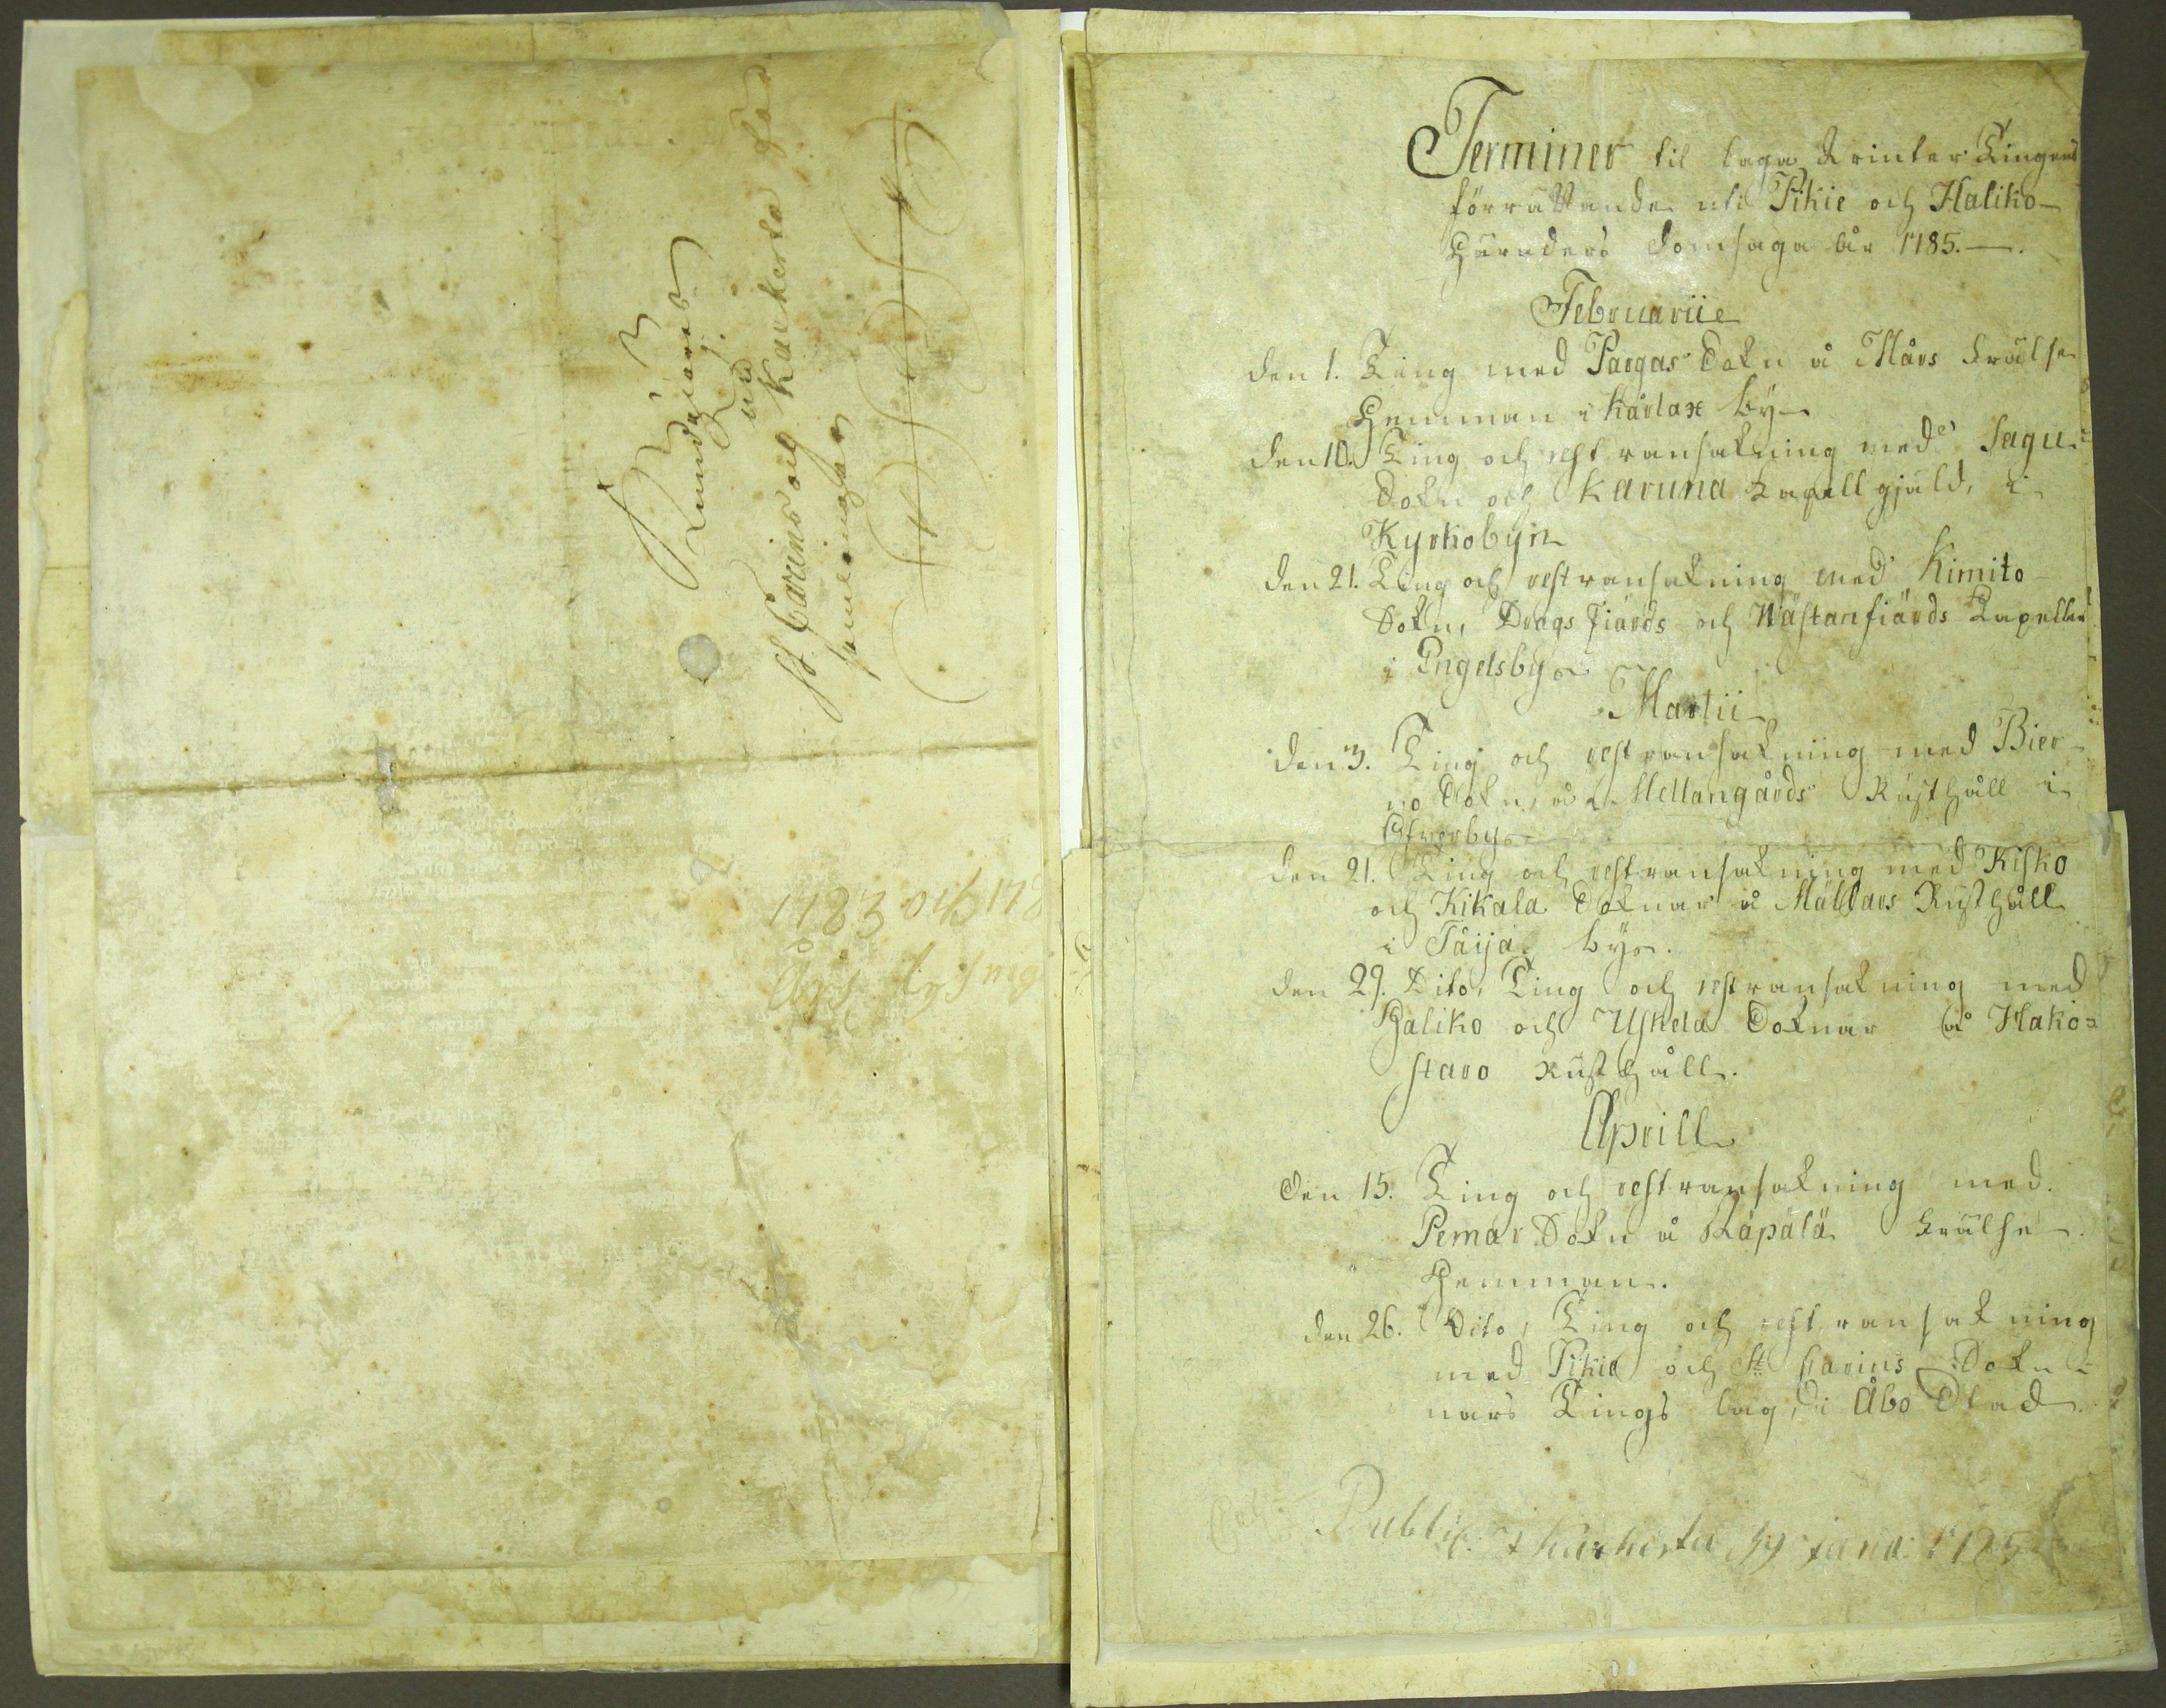 Kundgiöres
uti
St. Carins och Kuskerta
församlingar
1783 och 178
Års lysning
Terminer til laga Winter Tingens
förrättande uti Pikie och Haliko
Häraders Domsaga år 1785.
Februarii
den 1. Ting med Pargas Sokn å Mårs Frälse
Hemman i Kårlax by
den 10. Ting och rest ransakning med Sagu
Sokn och Karuna Capellgjäld, i
Kyrkobÿn
den 21. Ting och rest ransakning med Kimito
Sokn, Dragsfiärds och Wästanfiärds Capeller
i Engelsby
Martii
den 3. Ting och rest ransakning med Bier-
no Sokn, å Mellangårds Rusthåll i
Yfverby
den 21. Ting och rest ransakning med Kisko
och Kikala Soknar å Mällars Rusthåll
i Tåija by.
den 29. Dito, Ting och rest ransakning med
Haliko och Uskela Soknar å Hako=
staro Rusthåll.
Aprill
den 15. Ting och rest ransakning med
Pemar Sokn å Räpälä Frälse
Hemman.
den 26. Dito, Ting och rest ransakning
med Pikie och St. Karins Sok-
nars Tings lag, i Åbo Stad.
Public. i Kuskerta 1785